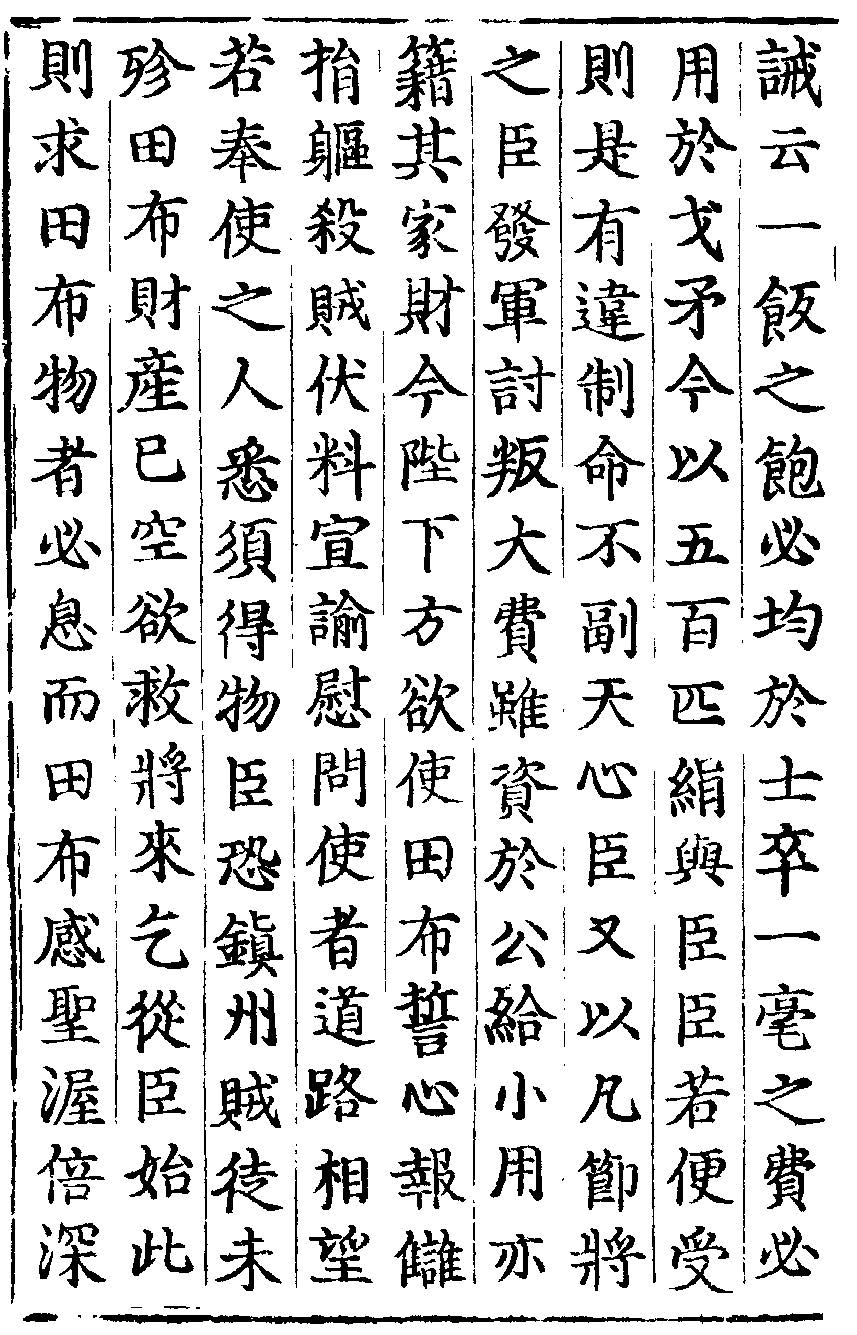 誡云一飯之飽必均於士卒一毫之費必
用於戈矛今以五百匹絹與臣臣若便受
則是有違制命不副天心臣又以凡節將
之臣發軍討叛大費雖資於公給小用亦
籍其家財今陛下方欲使田布誓心報讎
捐軀殺賊伏料宣諭慰問使者道路相望
若奉使之人悉須得物臣恐鎮州賊徒未
殄田布財產已空欲救將來乞從臣始此
則求田布物者必息而田布感聖渥倍深